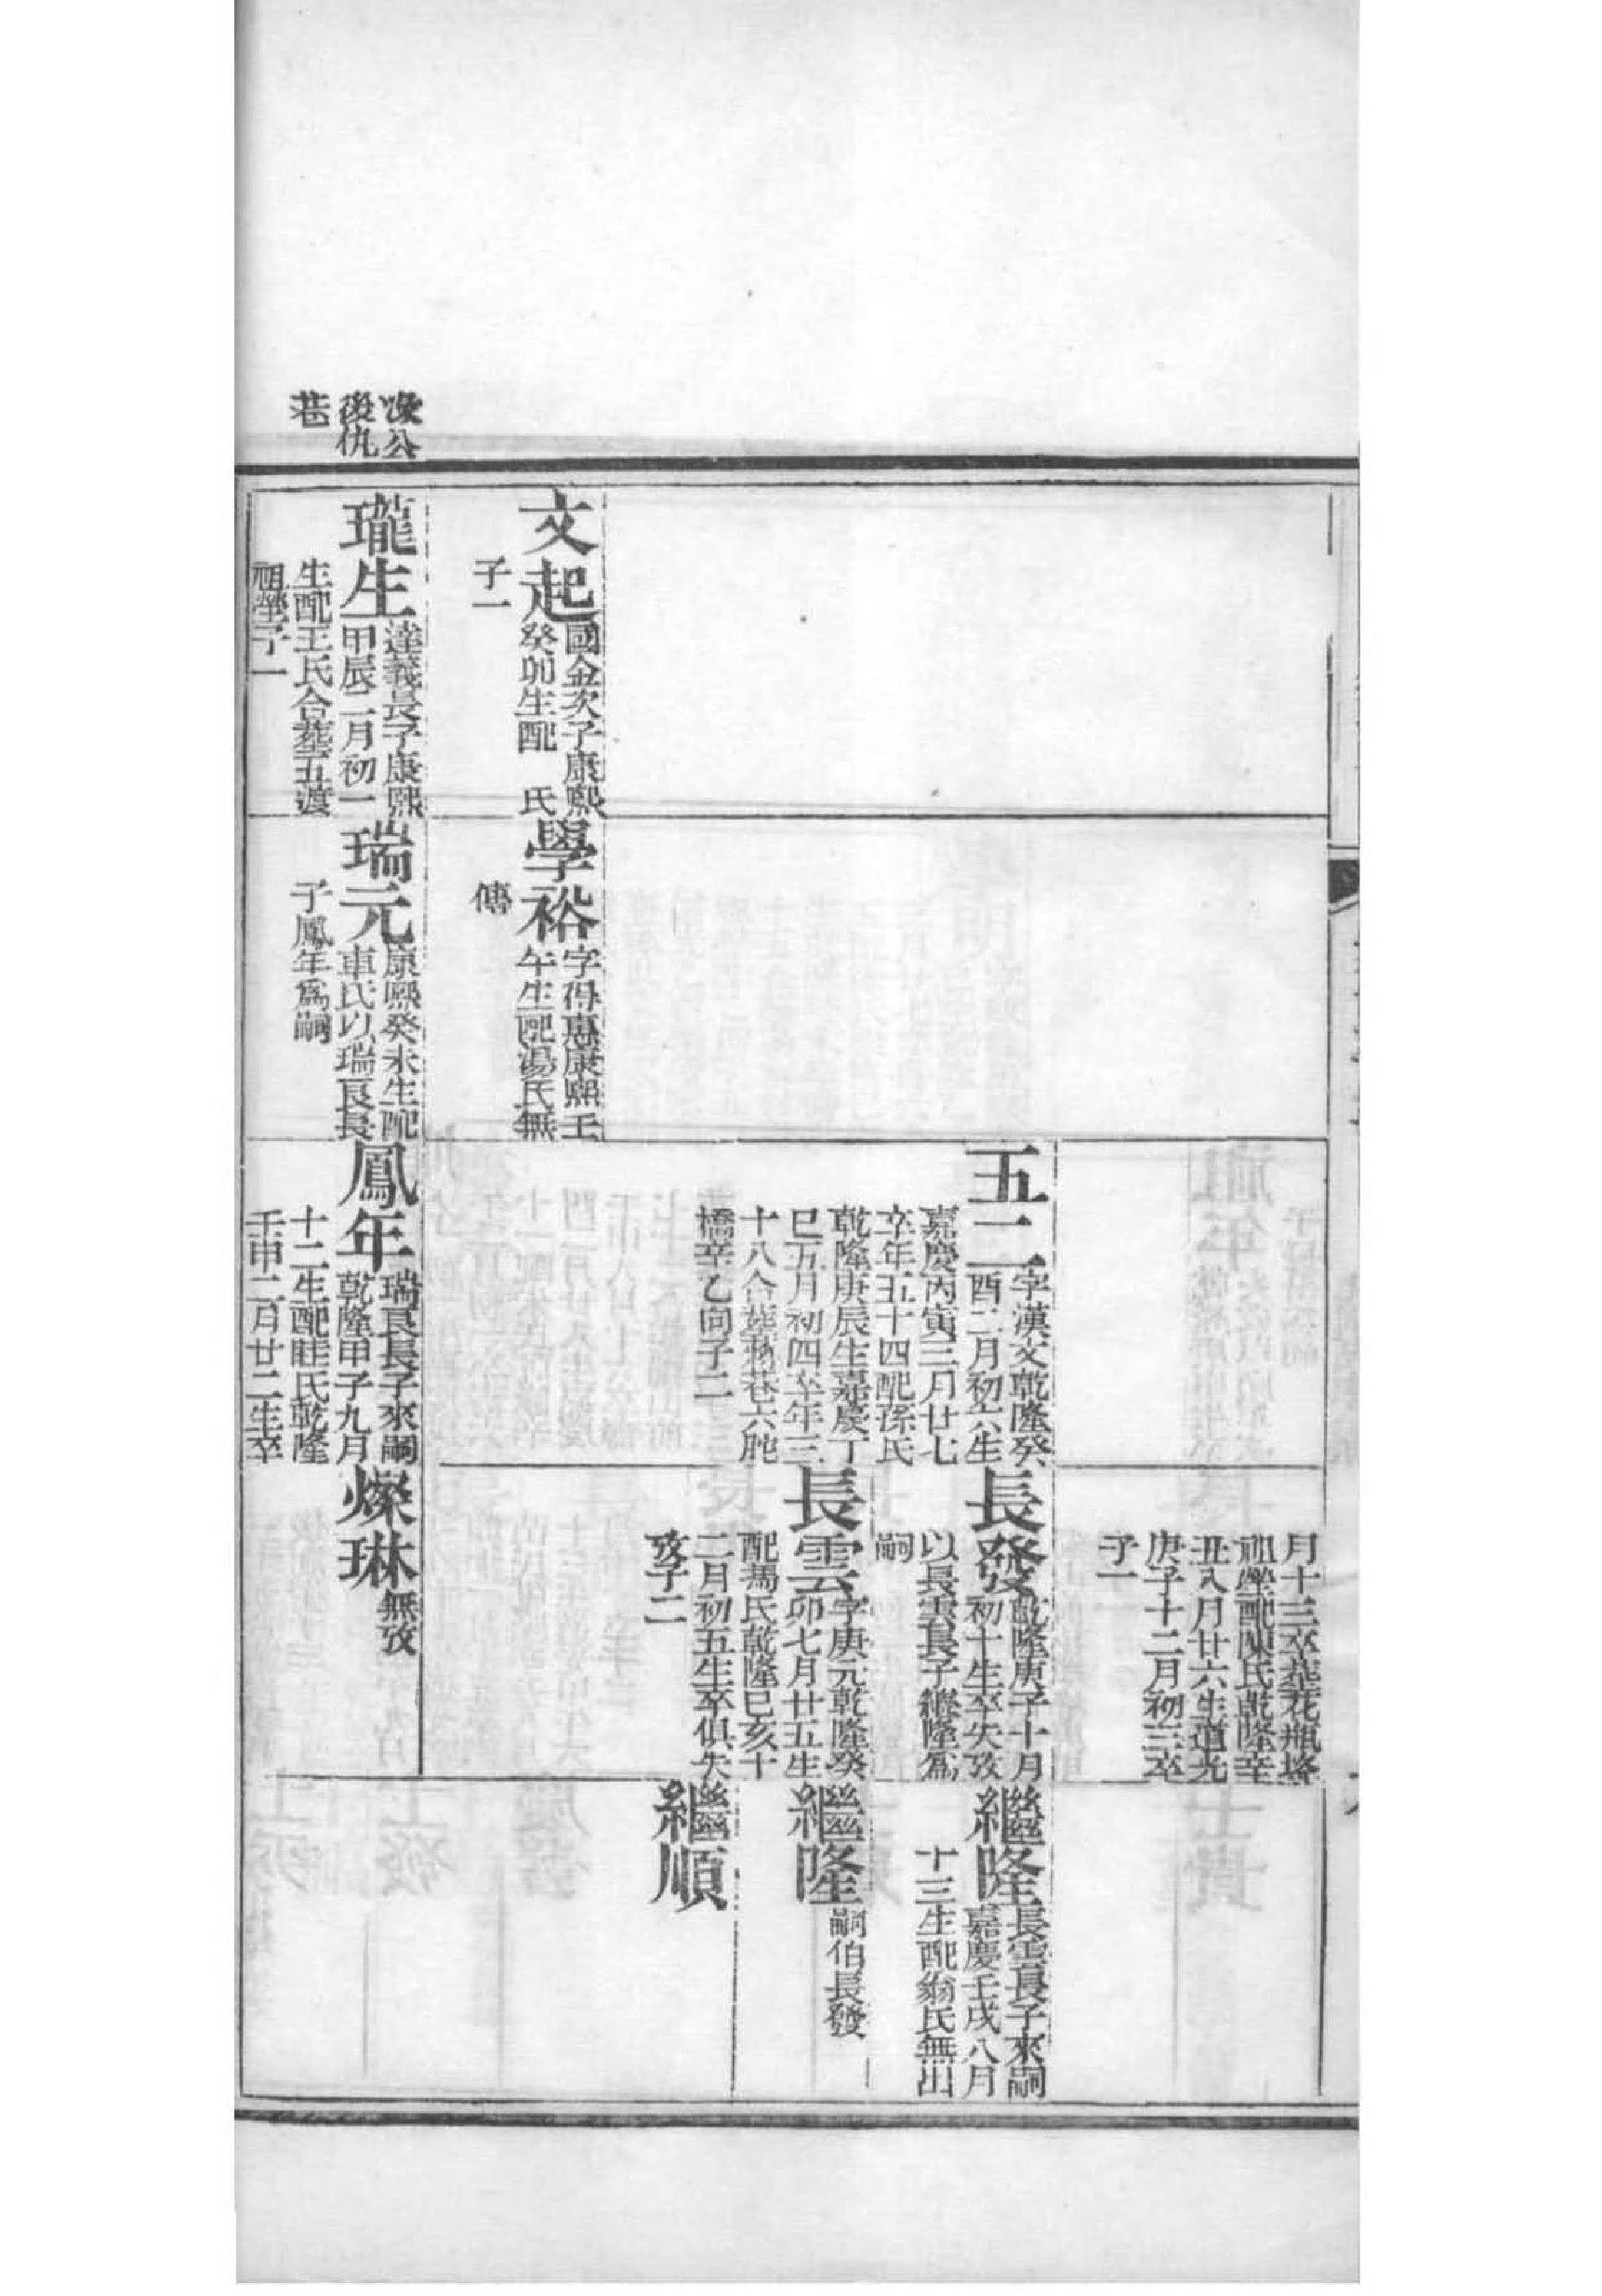 文起
國金次子康熙
癸卯生配　氏
子一
瓏生
達義長子康熙
甲辰二月初一
生配王氏合塟五渡
祖塋子一
學裕
字得惠康熙壬
午生配湯氏無
傳
瑞元
康熙癸未生配
車氏以瑞長長
子鳳年爲嗣
五二
字漢文乾隆癸
酉二月初六生
嘉慶丙寅三月廿七
卒年五十四配孫氏
乾隆庚辰生嘉慶丁
巳五月初四卒年三
十八合塟巷六
橋辛乙向子二
鳳年
瑞長長子來嗣
乾隆甲子九月
十二生配眭氏乾隆
壬申二月廿二生卒
月十三卒塟花瓶
祖塋配陳氏乾隆辛
丑八月廿六生道光
庚子十二月初三卒
子一
長發
乾隆庚子十月
初十生卒失攷
以長雲長子繼隆爲
嗣
長雲
字庚元乾隆癸
卯七月廿五生
配馬氏乾隆己亥十
二月初五生卒俱失
攷子二
燦琳
無攷
繼隆
長雲長子來嗣
嘉慶壬戌八月
十三生配翁氏無出
繼隆
嗣伯長發
繼順
次公
後仇
巷